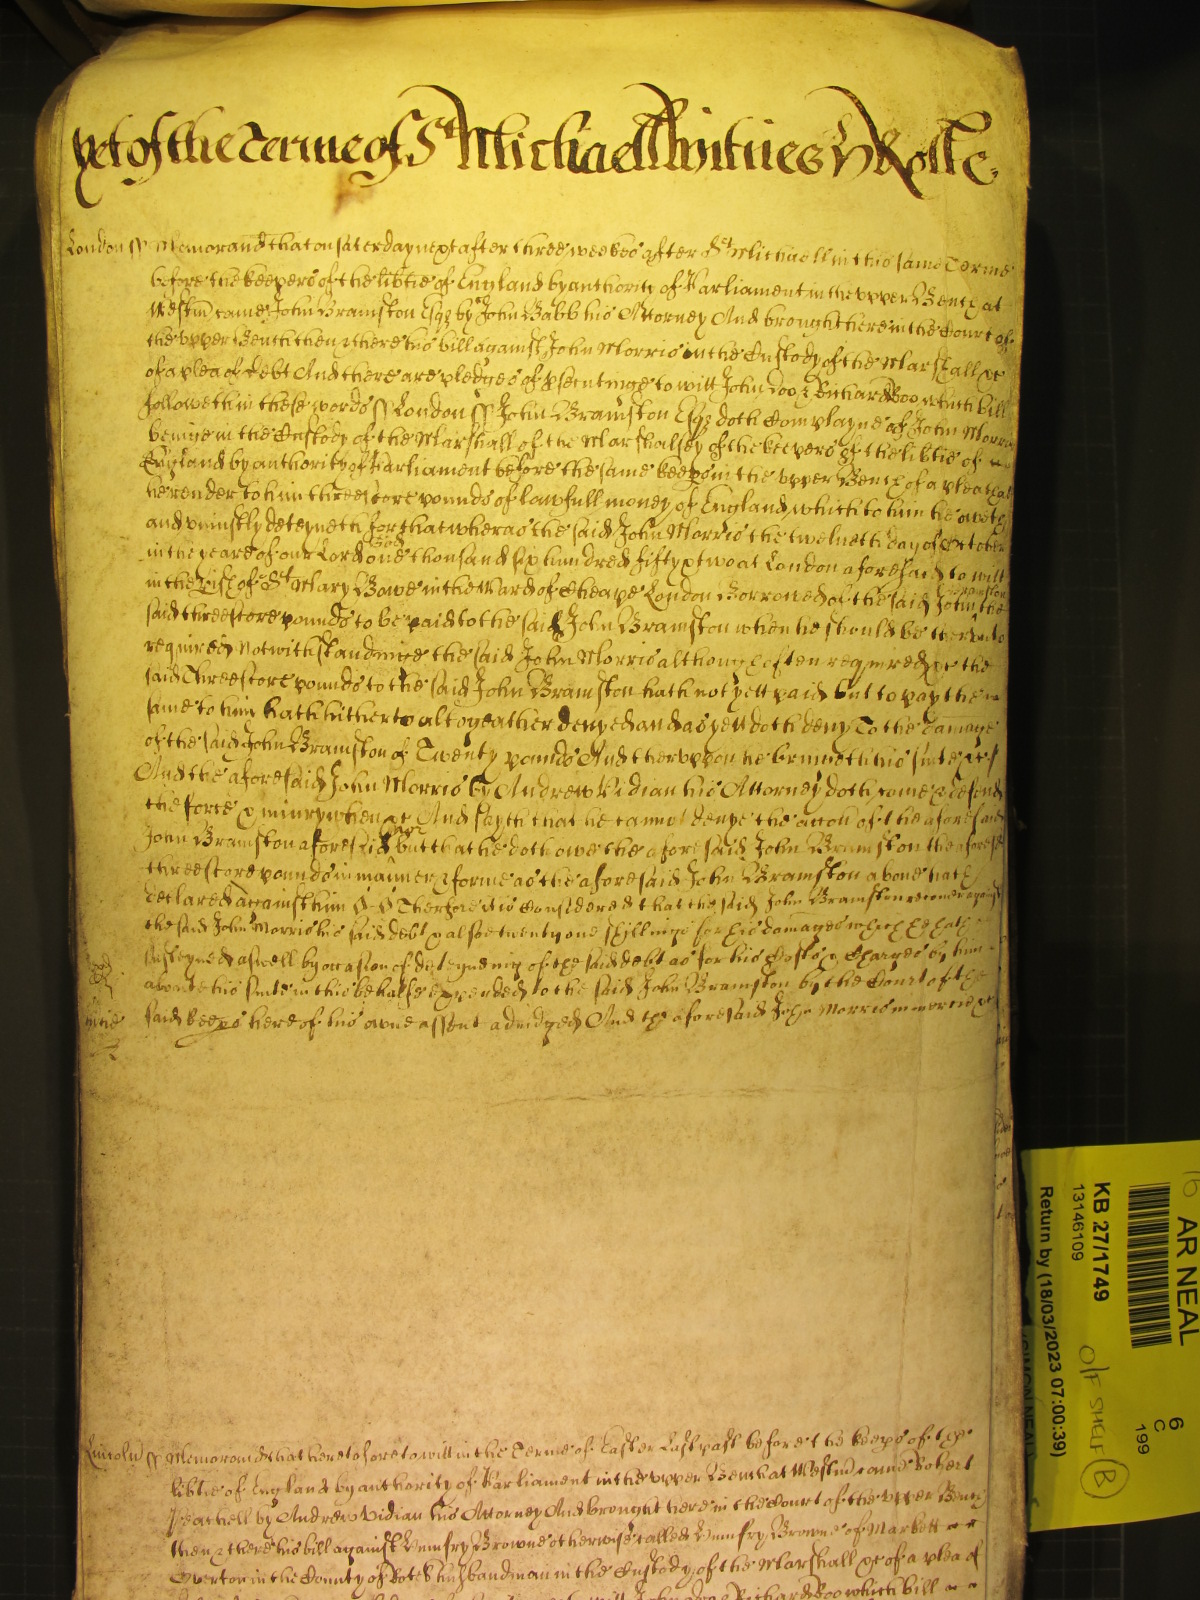 yet of the Terme of St Michaell Witnes H Rolle
London ss Memorand that on Saterday next after three weekes after St Michaell in this same Terme
before the keepers of the libtie of England by authority of Parliament in the upper Bench at
Westm came John Bramston Esqr by John Babb his Attorney And brought here in the Court of
the upper Bench then & there his bill against John Morris in the Custody of the Marshall &c
of a plea of debt And there are pledges of psecutinge to witt John Doo & Richard Roo which bill
followeth in these words ss London ss John Bramston Esqr doth Complayne of John Morris
beinge in the Custody of the Marshall of the Marshalsey of the keepers of the libtie of
England by authority of Parliament before the same keeps in the upper Bench of a plea that
he render to him threescore pounds of lawfull money of England which to him he oweth
and uniustly deteyneth for that wheras the said John Morris the twelueth day of October
in the yeare of our Lord God one thousand six hundred fifty & two at London aforesaid to witt
in the Pish of St Mary Bowe in the Ward of Cheape London Borrowed of the said John Bramston the
said threescore pounds to be paid to the said John Bramston when he should be therunto
required Notwithstandinge the said John Morris although often required &c the
said Threescore pounds to the said John Bramston hath not yett paid but to pay the
same to him hath hitherto altogeather denyed and as yett doth deny To the Damage
of the said John Bramston of Twenty pounds And therupon he bringeth his suite &c
And the aforesaid John Morris by Andrew Vidian his Attorney doth come & defend
the force & iniury when &c And sayth that he cannot denye the accon of the aforesaid
John Bramston aforesaid nor but that he doth owe the aforesaid John Bramston the aforesd
threescore pounds in manner & forme as the aforesaid John Bramston above hath
declared against him Therfore it is Considered that the said John Bramston recover against
the said John Morris his said debt & alsoe twenty one shillings for his damages which he hath
susteyned aswell by occasion of deteyneing of the said debt as for his Costs & Charges by him
about his suite in this behalfe expended to the said John Bramston by the Court of the
said keeps here of his owne assent adiudged And the aforesaid John Morris in mercie &c
Lincoln ss Memorand that heretofore to witt in the Terme of Easter last past before the keeps of the
libtie of England by authority of Parliament in the upper Bench at Westm came Robert
Peachell by Andrew Vidian his Attorney And brought here in the Court of the upper Bench
then & there his bill against Umfry Browne otherwise called Umfry Browne of Markett
Overton in the County of Rotel husbandman in the Custody of the Marshall &c of a plea of
Richard Roo which bill
AR NEAL
6
C
199
KB 27/1749
13146109
Return by (18/03/2023 07:00:39)
(SIMON NEAL)
O/F SHELF B
16